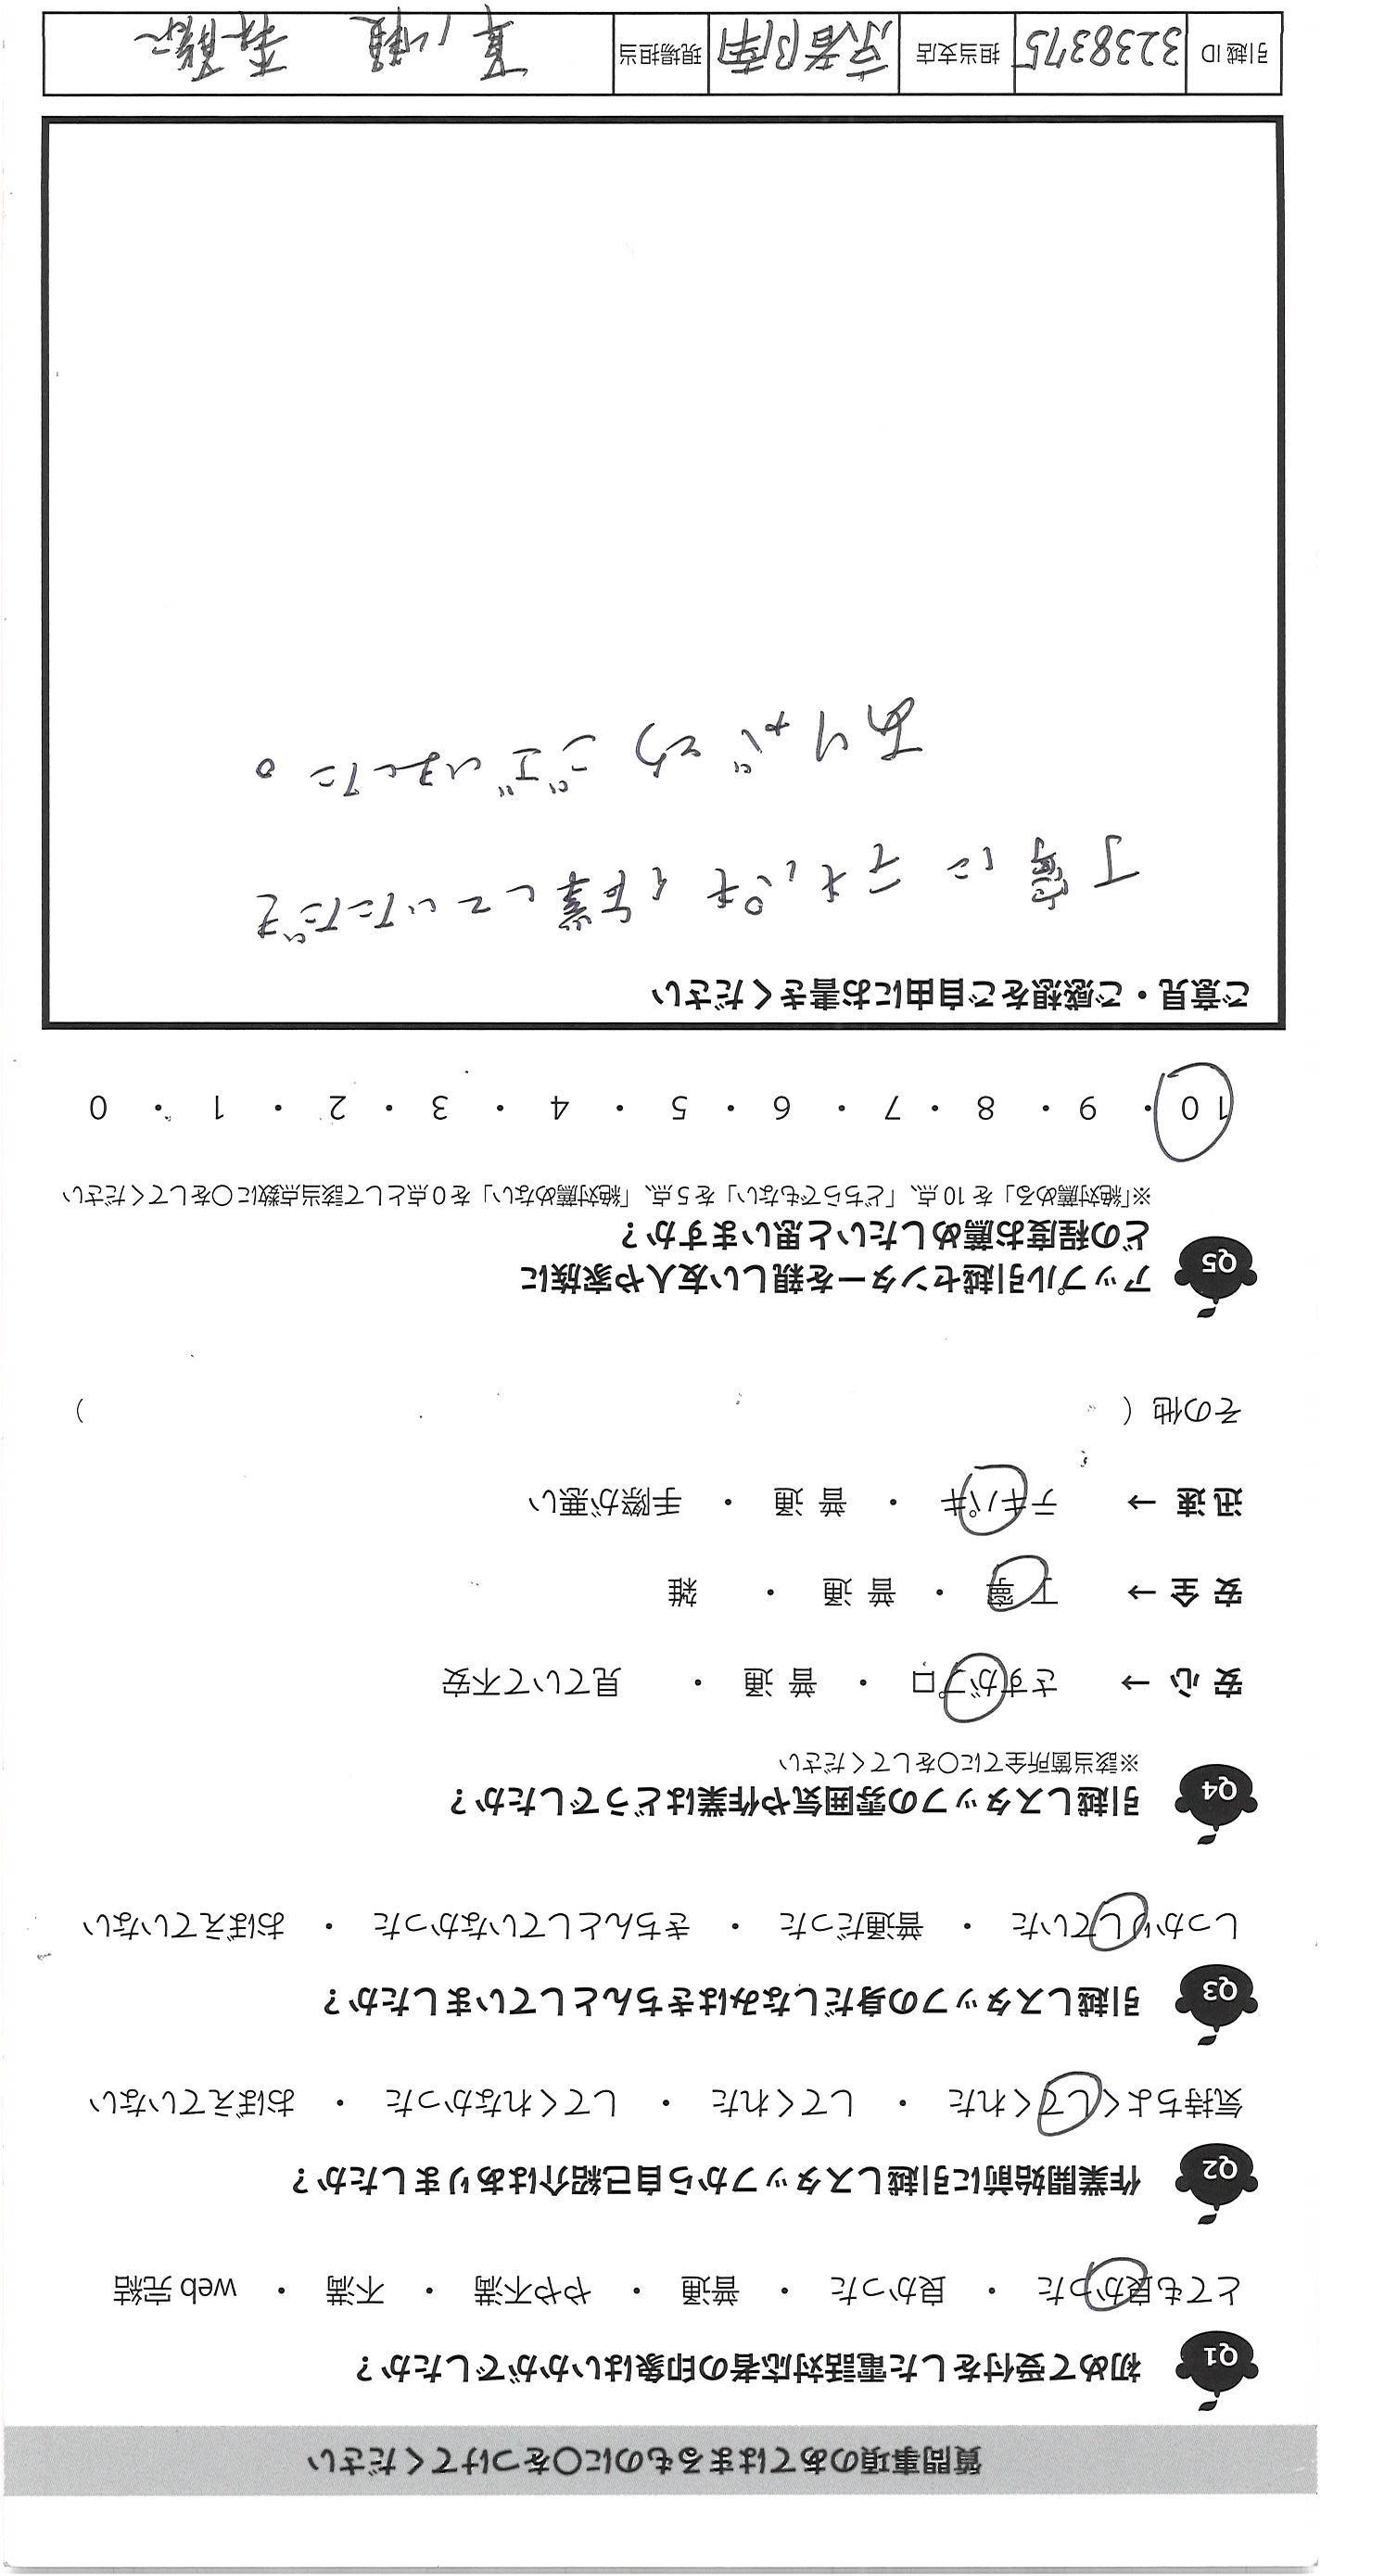 質問事項のあてはまるものに○をつけてください
Q1 初めて受付をした電話対応者の印象はいかがでしたか？
とても良かった ・ 良かった ・ 普通 ・ やや不満 ・ 不満 ・ web 完結
Q2 作業開始前に引越しスタッフから自己紹介はありましたか？
気持ちよくしてくれた ・ してくれた ・ してくれなかった ・ おぼえていない
Q3 引越しスタッフの身だしなみはきちんとしていましたか？
しっかりしていた ・ 普通だった ・ きちんとしていなかった ・ おぼえていない
Q4 引越しスタッフの雰囲気や作業はどうでしたか？
※該当箇所全てに○をしてください
安 心 → さすがプロ ・ 普 通 ・ 見ていて不安
安 全 → 丁 寧 ・ 普 通 ・ 雑
迅 速 → テキパキ ・ 普 通 ・ 手際が悪い
その他（ ）
Q5 アップル引越センターを親しい友人や家族に
どの程度お薦めしたいと思いますか？
※「絶対薦める」を 10 点、「どちらでもない」を 5 点、「絶対薦めない」を 0 点として該当点数に○をしてください
10 ・ 9 ・ 8 ・ 7 ・ 6 ・ 5 ・ 4 ・ 3 ・ 2 ・ 1 ・ 0
ご意見・ご感想をご自由にお書きください
丁寧にテキパキ作業していただき
ありがとうございました。
引越 ID 3238375 担当支店 京都南 現場担当